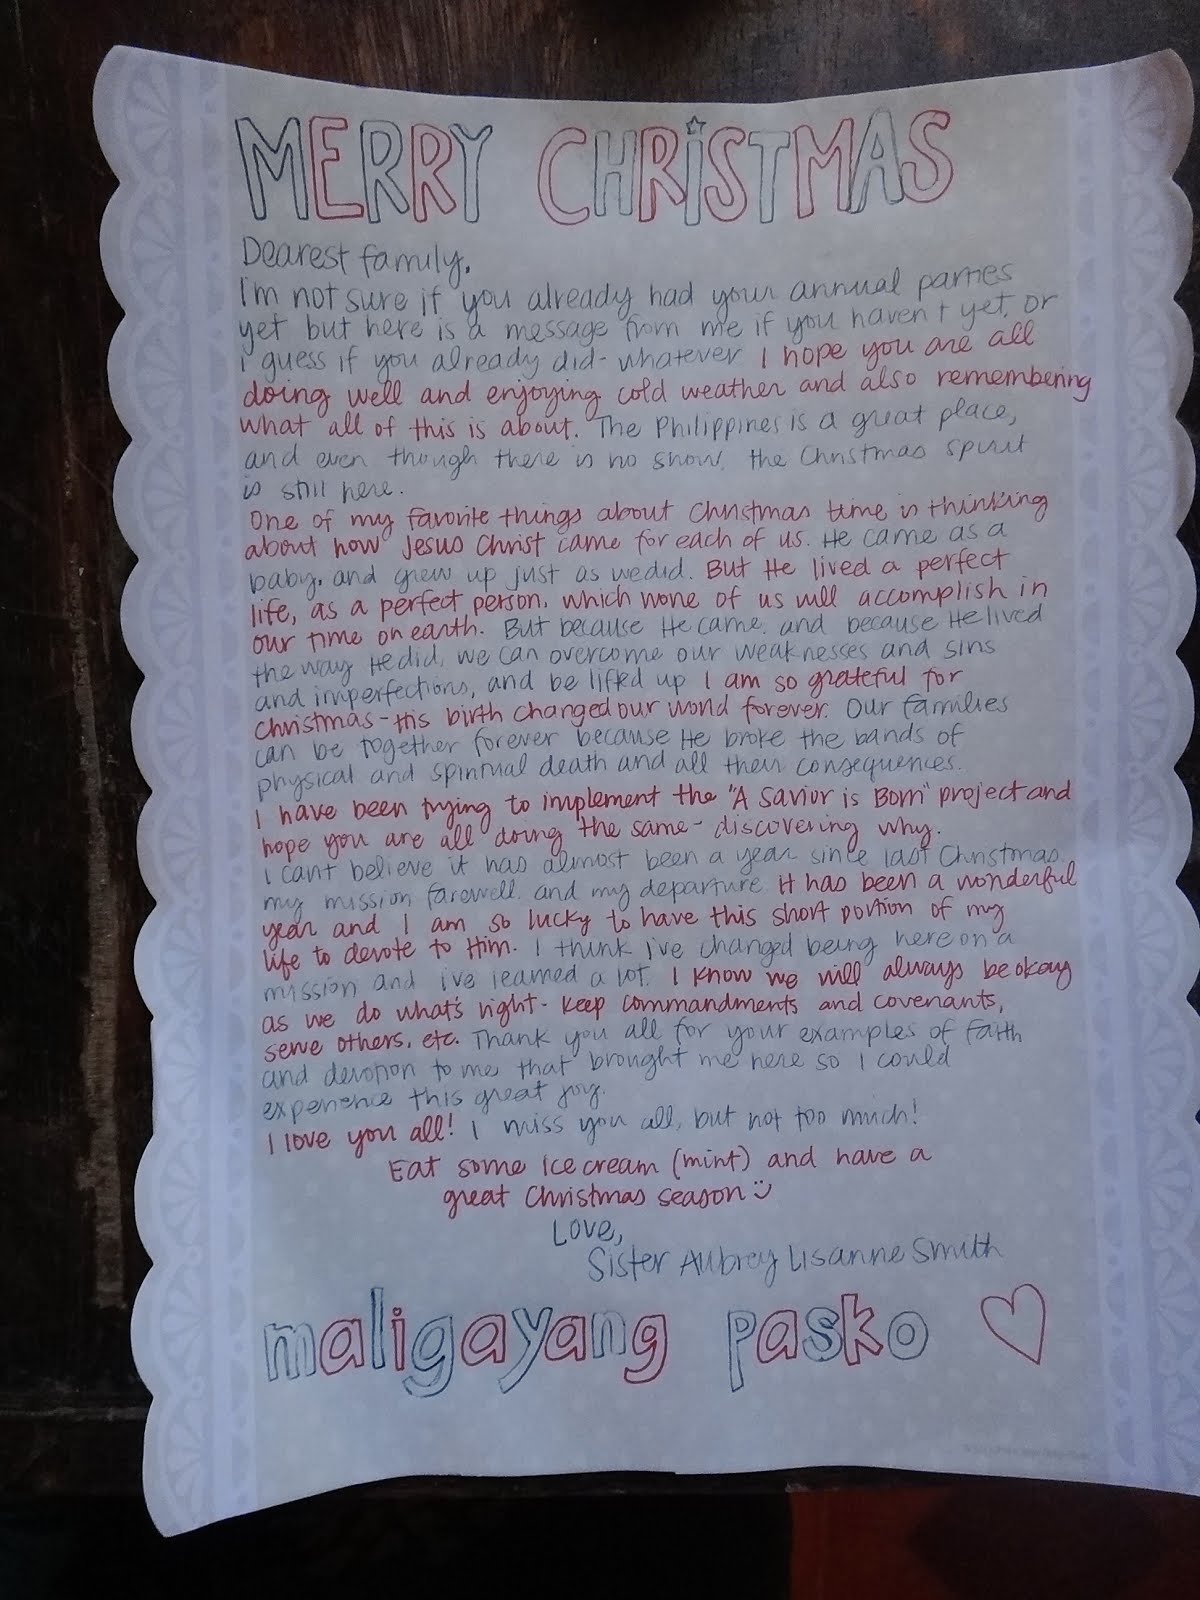 MERRY CHRISTMAS
Dearest family,
I'm not sure if you already had your annual parties
yet but here is a message from me if you haven't yet, or
I guess if you already did - whatever. I hope you are all
doing well and enjoying cold weather and also remembering
what all of this is about. The Philippines is a great place,
and even though there is no snow, the Christmas spirit
is still here.
One of my favorite things about Christmas time is thinking
about how Jesus Christ came for each of us. He came as a
baby, and grew up just as we did. But He lived a perfect
life, as a perfect person, which none of us will accomplish in
our time on earth. But because He came, and because He lived
the way He did, we can overcome our weaknesses and sins
and imperfections, and be lifted up. I am so grateful for
Christmas - His birth changed our world forever. Our families
can be together forever because He broke the bands of
physical and spiritual death and all their consequences.
I have been trying to implement the "A Savior is Born" project and
hope you are all doing the same - discovering why.
I can't believe it has almost been a year since last Christmas,
my mission farewell, and my departure. It has been a wonderful
year and I am so lucky to have this short portion of my
life to devote to Him. I think I've changed being here on a
mission and I've learned a lot. I know we will always be okay
as we do what's right - keep commandments and covenants,
serve others, etc. Thank you all for your examples of faith
and devotion to me that brought me here so I could
experience this great joy.
I love you all! I miss you all, but not too much!
Eat some ice cream (mint) and have a
great Christmas season :)
Love,
Sister Aubrey Lisanne Smith
maligayang pasko